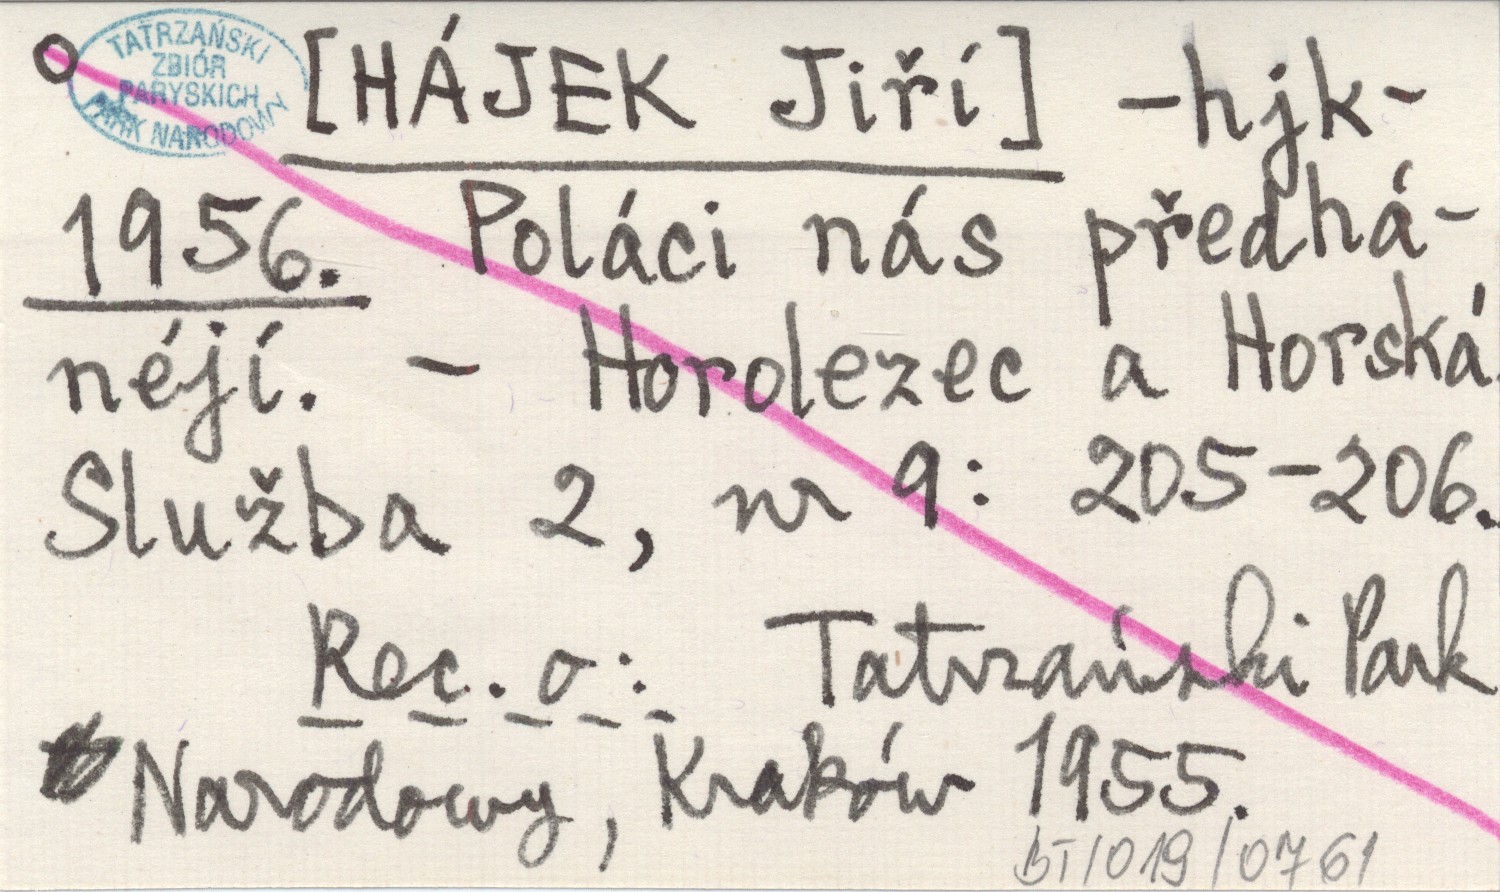 TATRZAŃSKI
ZBIÓR
PARYSKICH
PARK NARODOWY
[HÁJEK Jiří] -hjk-
1956. Poláci nás předhá-
néjí. - Horolezec a Horská
Služba 2, nr 9: 205-206.
Rec. o: Tatrzański Park
Narodowy, Kraków 1955.
BT/019/0761